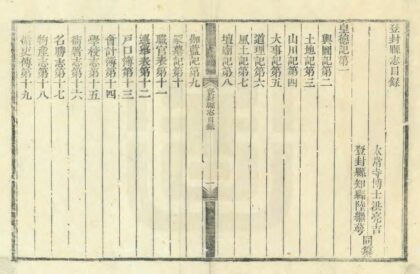 登封縣志目錄
太常寺博士洪亮吉
登封縣知縣陸繼萼
同纂
皇德記第一
輿圖記第二
土地記第三
山川記第四
大事記第五
道里記第六
風土記第七
壇廟記第八
登封縣志目錄
一
伽藍記第九
冢墓記第十
職官表第十一
選舉表第十二
戶口簿第十三
會計簿第十四
學校志第十五
衙署志第十六
名勝志第十七
物產志第十八
循吏傳第十九